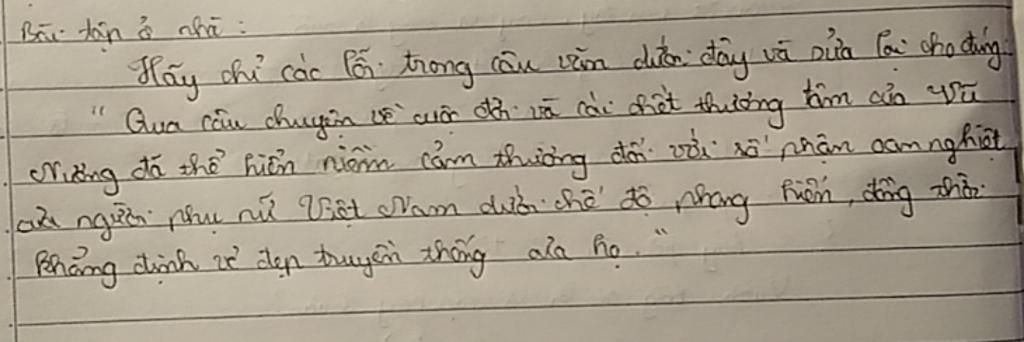 Bài tập ở nhà :
Hãy chỉ các lỗi trong câu văn dưới đây và sửa lại cho đúng:
" Qua câu chuyện về cuộc đời và cái chết thương tâm của Vũ
Nương đã thể hiện niềm cảm thương đối với số phận oan nghiệt
của người phụ nữ Việt Nam dưới chế độ phong kiến, đồng thời
khẳng định vẻ đẹp truyền thống của họ. "